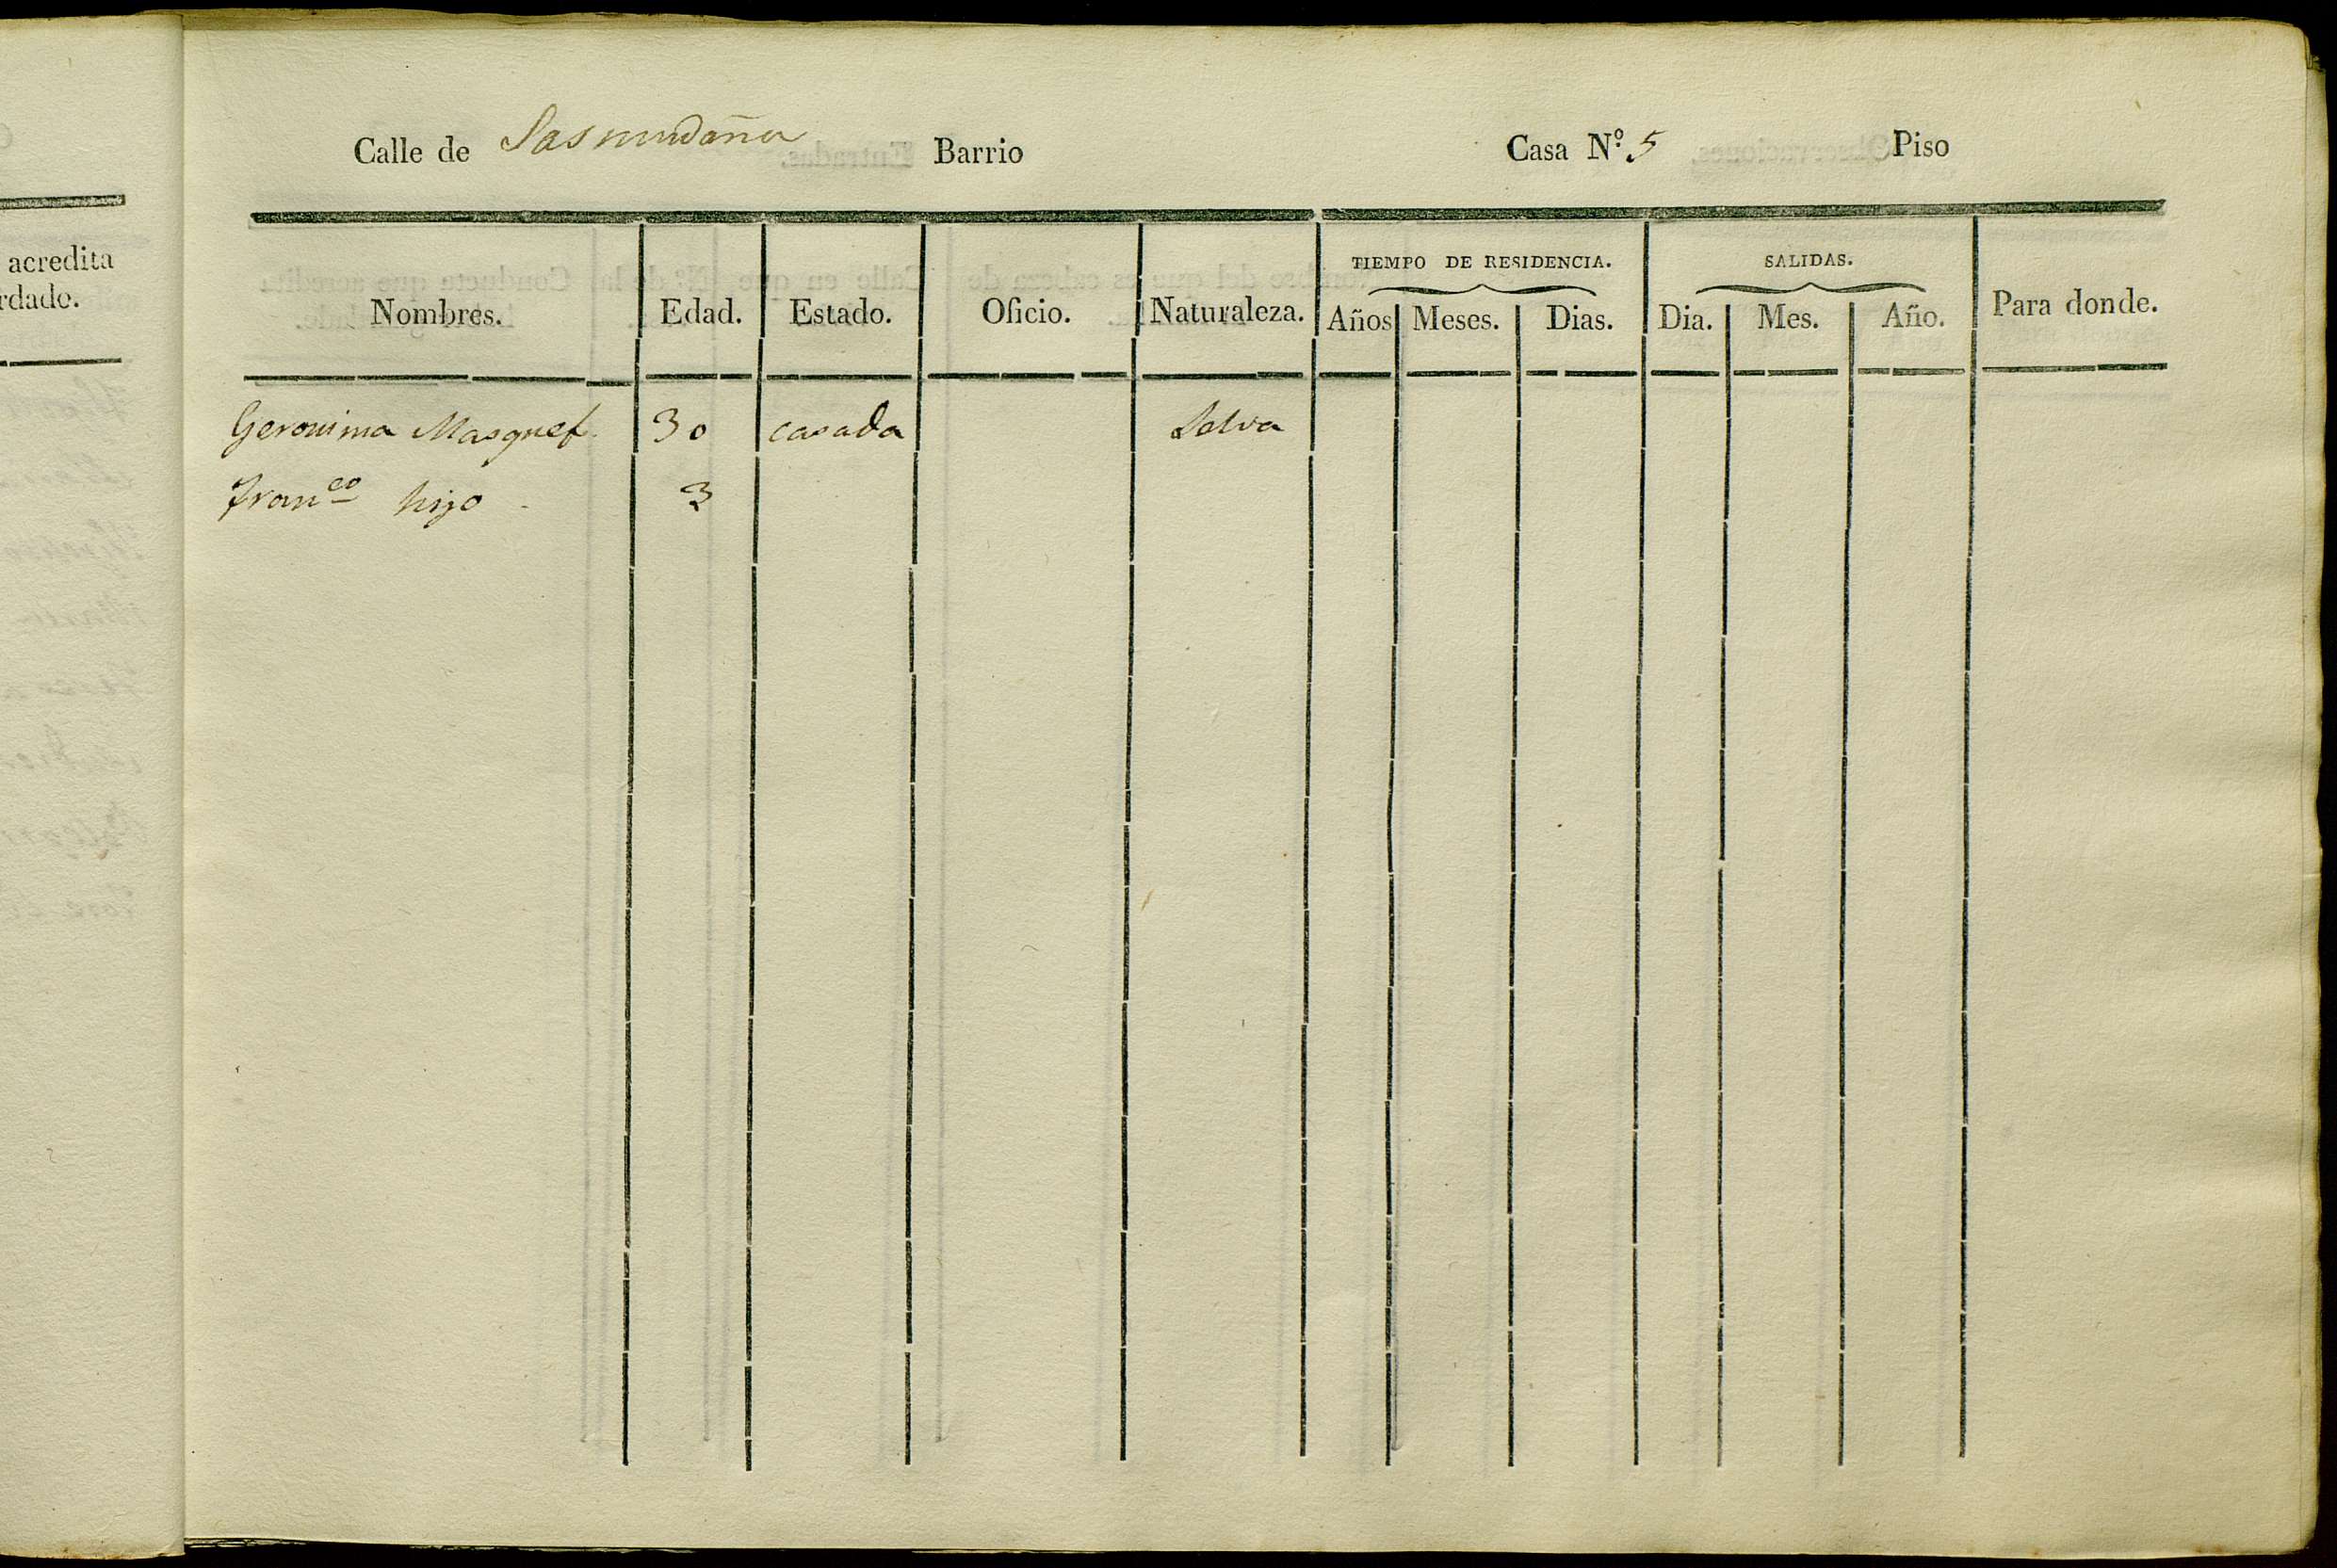 acredita
rdado.
Calle de Sasmudaña Barrio Casa Nº 5 Piso
Nombres. Edad. Estado. Oficio. Naturaleza. TIEMPO DE RESIDENCIA. Años Meses. Dias. SALIDAS. Dia. Mes. Año. Para donde.
Geronima Masquef. 30 casada Selva
Franco hijo 3